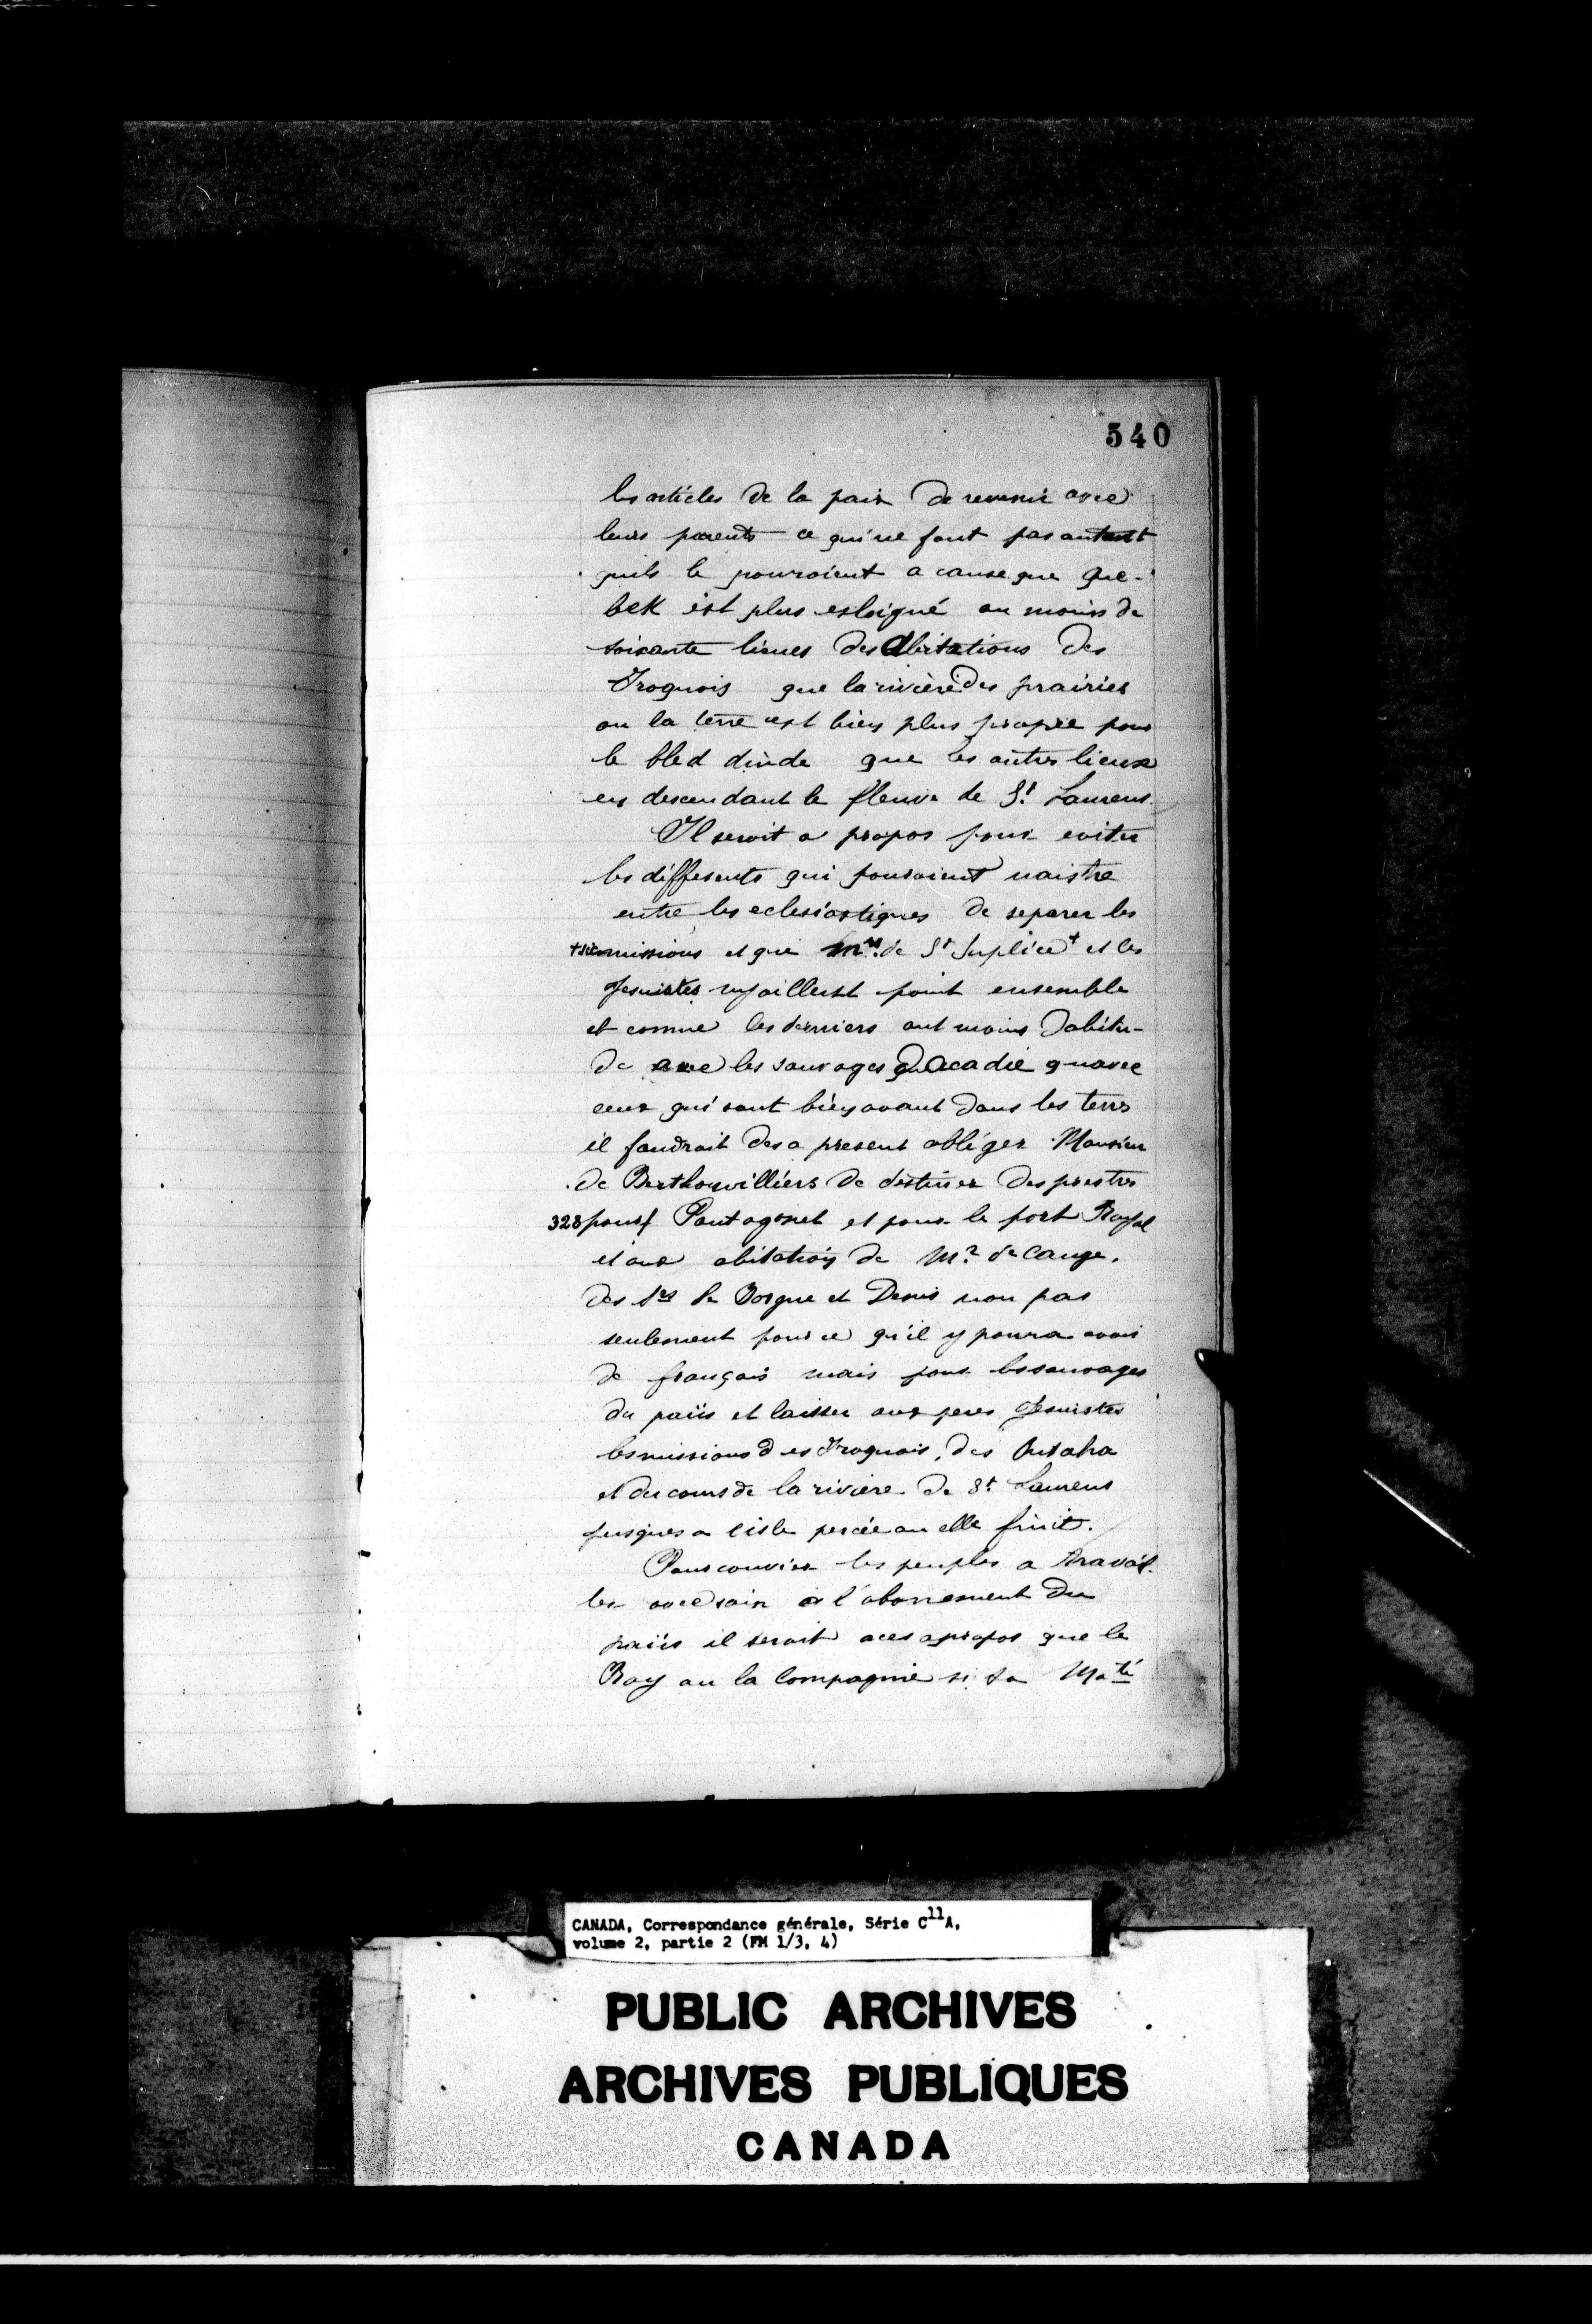 540
les articles de la paix de revenir avec
leurs parents ce qui ne font pas autant
quils le pouroient a cause que Que-
bek est plus esloigné au moins de
soixante lieues des abitations des
Iroquois que la rivière des prairies
ou la terre est bien plus propre pour
le bled dinde que les autres lieux
en descendant le fleuve de St Laurens.
Il seroit a propos pour eviter
les différents qui pouroient naistre
entre les eclesiastiques de separer les
+sic missions et que Mrs de St Suplice+ et les
Jesuistes ny aillent point ensemble
et comme les derniers ont moins dabitu-
de avec les sauvages Dacadie quavec
ceux qui sont bien avant dans les terres
il faudroit des a present obliger Monsieur
de Berthouvilliers de destiner des prestres
328 pour/ Pantagouet et pour le port Royal
et aux abitations de Mr de Cange,
des srs le Borgne et Denis non pas
seulement pour ce qu'il y poura avoir
de françois mais pour les sauvages
du païis et laisser aux peres Jesuistes
les missions des Iroquois, des Outaha
et du cours de la rivière de St Laurens
jusques a lisle percée ou elle finit.
Pour convier les peuples a travail-
ler avec soin a l'abornement du
païis il seroit aces apropos que le
Roy ou la Compagnie si sa Maté
CANADA, Correspondance générale, Série C11A,
volume 2, partie 2 (FM 1/3, 4)
PUBLIC ARCHIVES
ARCHIVES PUBLIQUES
CANADA